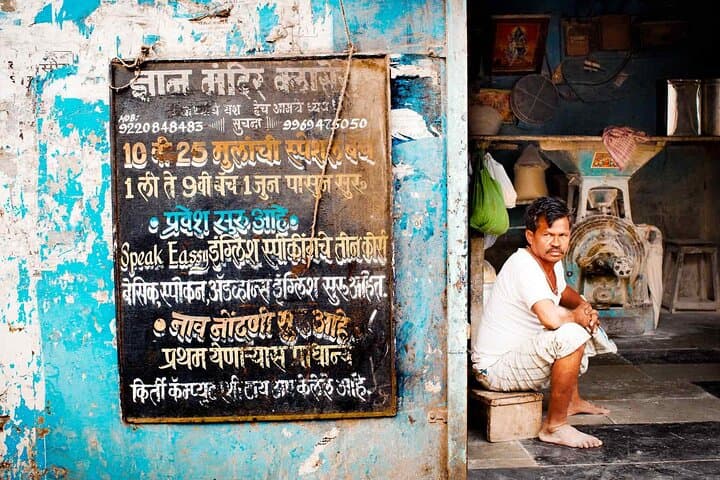 ज्ञान मंदिर क्लासेस
यश हेच आमचे ध्येय
MOB:
9220848483 सुचना 9969475050
10 वी 25 मुलांची स्पेशल बॅच
1 ली ते 9 वी बॅच 1 जुन पासुन सुरु
प्रवेश सुरु आहे
Speak Eassy इंग्लिश स्पीकींगचे तीन कोर्स
बेसिक, स्पोकन, अॅडव्हान्स इंग्लिश सुरु आहेत.
नाव नोंदणी सुरु आहे
प्रथम येणाऱ्यास प्राधान्य
किर्ती कॅम्प्युटर आहे.